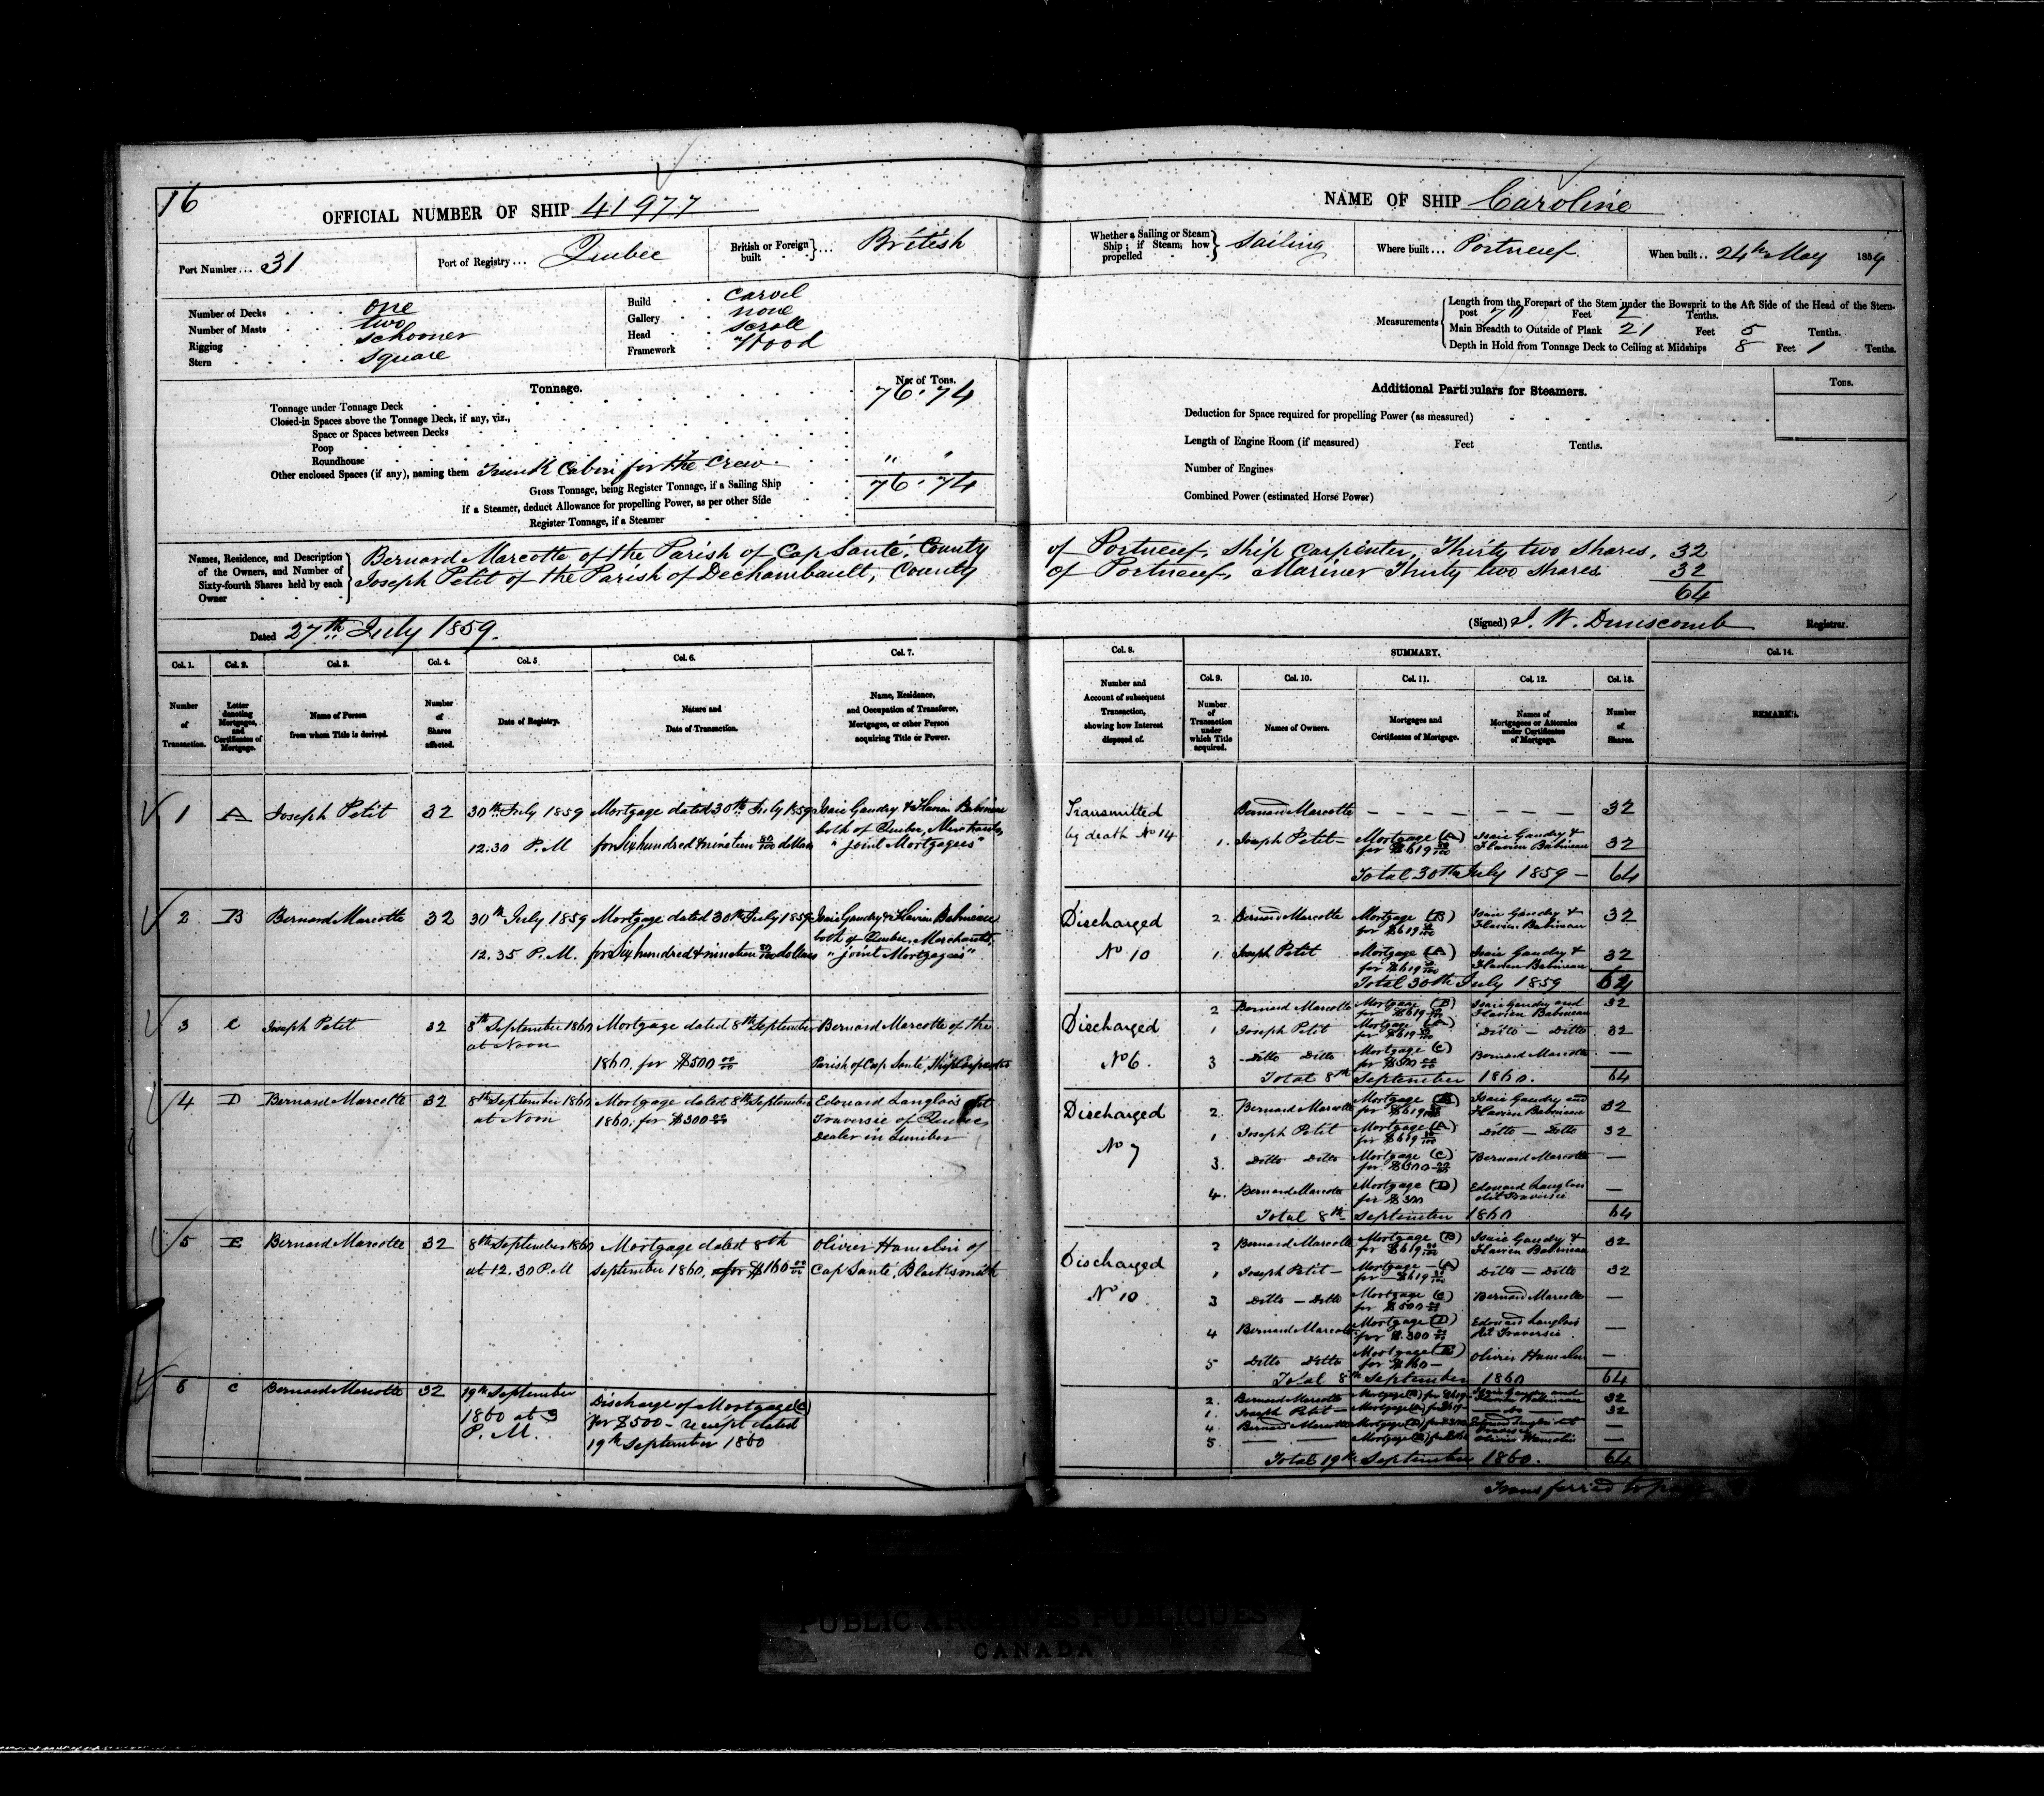 16
OFFICIAL NUMBER OF SHIP 41977
Port Number... 31
Port of Registry... Quebec
British or Foreign built } ... British
Number of Decks . . . . one
Number of Masts . . . . two
Rigging . . . . schooner
Stern . . . . square
Build . . carvel
Gallery . . none
Head . . scroll
Framework . Wood
Tonnage.
No. of Tons.
Tonnage under Tonnage Deck 76.74
Closed-in Spaces above the Tonnage Deck, if any, viz.,
Space or Spaces between Decks
Poop
Roundhouse
Other enclosed Spaces (if any), naming them Trunk Cabin for the Crew " "
Gross Tonnage, being Register Tonnage, if a Sailing Ship 76.74
If a Steamer, deduct Allowance for propelling Power, as per other Side
Register Tonnage, if a Steamer
NAME OF SHIP Caroline
Whether a Sailing or Steam Ship; if Steam, how propelled } Sailing
Where built... Portneuf
When built.. 24th May 1859
Measurements
Length from the Forepart of the Stem under the Bowsprit to the Aft Side of the Head of the Stern-
post 70 Feet 2 Tenths.
Main Breadth to Outside of Plank 21 Feet 5 Tenths.
Depth in Hold from Tonnage Deck to Ceiling at Midships 8 Feet 1 Tenths.
Additional Particulars for Steamers.
Tons.
Deduction for Space required for propelling Power (as measured)
Length of Engine Room (if measured) Feet Tenths.
Number of Engines
Combined Power (estimated Horse Power)
Names, Residence, and Description of the Owners, and Number of Sixty-fourth Shares held by each Owner
Bernard Marcotte of the Parish of Cap Santé, County of Portneuf, Ship Carpenter, Thirty two Shares. 32
Joseph Petit of the Parish of Dechambault, County of Portneuf, Mariner Thirty two shares 32
64
Dated 27th July 1859.
(Signed) J. W. Dunscomb Registrar.
Col. 1. Col. 2. Col. 3. Col. 4. Col. 5. Col. 6. Col. 7.
Number of Transaction.
Letter denoting Mortgages, and Certificates of Mortgage.
Name of Person from whom Title is derived.
Number of Shares affected.
Date of Registry.
Nature and Date of Transaction.
Name, Residence, and Occupation of Transferee, Mortgagee, or other Person acquiring Title or Power.
Col. 8. SUMMARY. Col. 14.
Col. 9. Col. 10. Col. 11. Col. 12. Col. 13.
Number and Account of subsequent Transaction, showing how Interest disposed of.
Number of Transaction under which Title acquired.
Names of Owners.
Mortgages and Certificates of Mortgage.
Names of Mortgagees or Attornies under Certificates of Mortgage.
Number of Shares.
REMARKS.
1 A Joseph Petit 32 30th July 1859 Mortgage dated 30th July 1859 Isaie Gaudry & Flavien Babineau
12.30 P.M for Six hundred & nineteen 80/100 dollars both of Quebec, Merchants,
"joint Mortgagees"
Transmitted by death No 14
Bernard Marcotte 32
1. Joseph Petit Mortgage (A) for $619 80/100 Isaie Gaudry & Flavien Babineau 32
Total 30th July 1859 64
2 B Bernard Marcotte 32 30th July 1859 Mortgage dated 30th July 1859 Isaie Gaudry & Flavien Babineau
12.35 P.M. for Six hundred & nineteen 80/100 dollars both of Quebec, Merchants,
"joint Mortgagees"
Discharged No 10
2. Bernard Marcotte Mortgage (B) for $619 80/100 Isaie Gaudry & Flavien Babineau 32
1. Joseph Petit Mortgage (A) for $619 80/100 Isaie Gaudry & Flavien Babineau 32
Total 30th July 1859 64
3 C Joseph Petit 32 8th September 1860 at Noon Mortgage dated 8th September 1860, for $500 00/00 Bernard Marcotte of the
Parish of Cap Santé, Ship Carpenter
Discharged No 6.
2 Bernard Marcotte Mortgage (B) for $619 80/100 Isaie Gaudry and Flavien Babineau 32
1 Joseph Petit Mortgage (A) for $619 80/100 Ditto — Ditto 32
3 Ditto Ditto Mortgage (C) for $500 Bernard Marcotte —
Total 8th September 1860. 64
4 D Bernard Marcotte 32 8th September 1860 at Noon Mortgage dated 8th September 1860, for $300 00/00 Edouard Langlois dit
Traversie of Quebec,
Dealer in Lumber
Discharged No 7
2. Bernard Marcotte Mortgage (B) for $619 80/100 Isaie Gaudry and Flavien Babineau 32
1. Joseph Petit Mortgage (A) for $619 80/100 Ditto — Ditto 32
3. Ditto Ditto Mortgage (C) for $500 00/00 Bernard Marcotte —
4. Bernard Marcotte Mortgage (D) for $300 Edouard Langlois dit Traversie —
Total 8th September 1860 64
5 E Bernard Marcotte 32 8th September 1860 at 12.30 P.M Mortgage dated 8th September 1860, for $160 00/00 Olivier Hamelin of
Cap Santé, Blacksmith
Discharged No 10
2 Bernard Marcotte Mortgage (B) for $619 80/100 Isaie Gaudry & Flavien Babineau 32
1 Joseph Petit Mortgage (A) for $619 80/100 Ditto — Ditto 32
3 Ditto — Ditto Mortgage (C) for $500 00/00 Bernard Marcotte —
4 Bernard Marcotte Mortgage (D) for $.300 00/00 Edouard Langlois dit Traversie —
5 Ditto Ditto Mortgage (E) for $160 — Olivier Hamelin —
Total 8th September 1860 64
6 C Bernard Marcotte 32 19th September 1860 at 3 P.M. Discharge of Mortgage (C)
for $500 - receipt dated
19th September 1860
2. Bernard Marcotte Mortgage (B) for $619 Isaie Gaudry and Flavien Babineau 32
1. Joseph Petit Mortgage (A) for $619 — do — 32
4. Bernard Marcotte Mortgage (D) for $300 Edouard Langlois dit Traversie —
5. — Mortgage (E) for $160 Olivier Hamelin —
Total 19th September 1860. 64
Transferred to page
PUBLIC ARCHIVES PUBLIQUES
CANADA